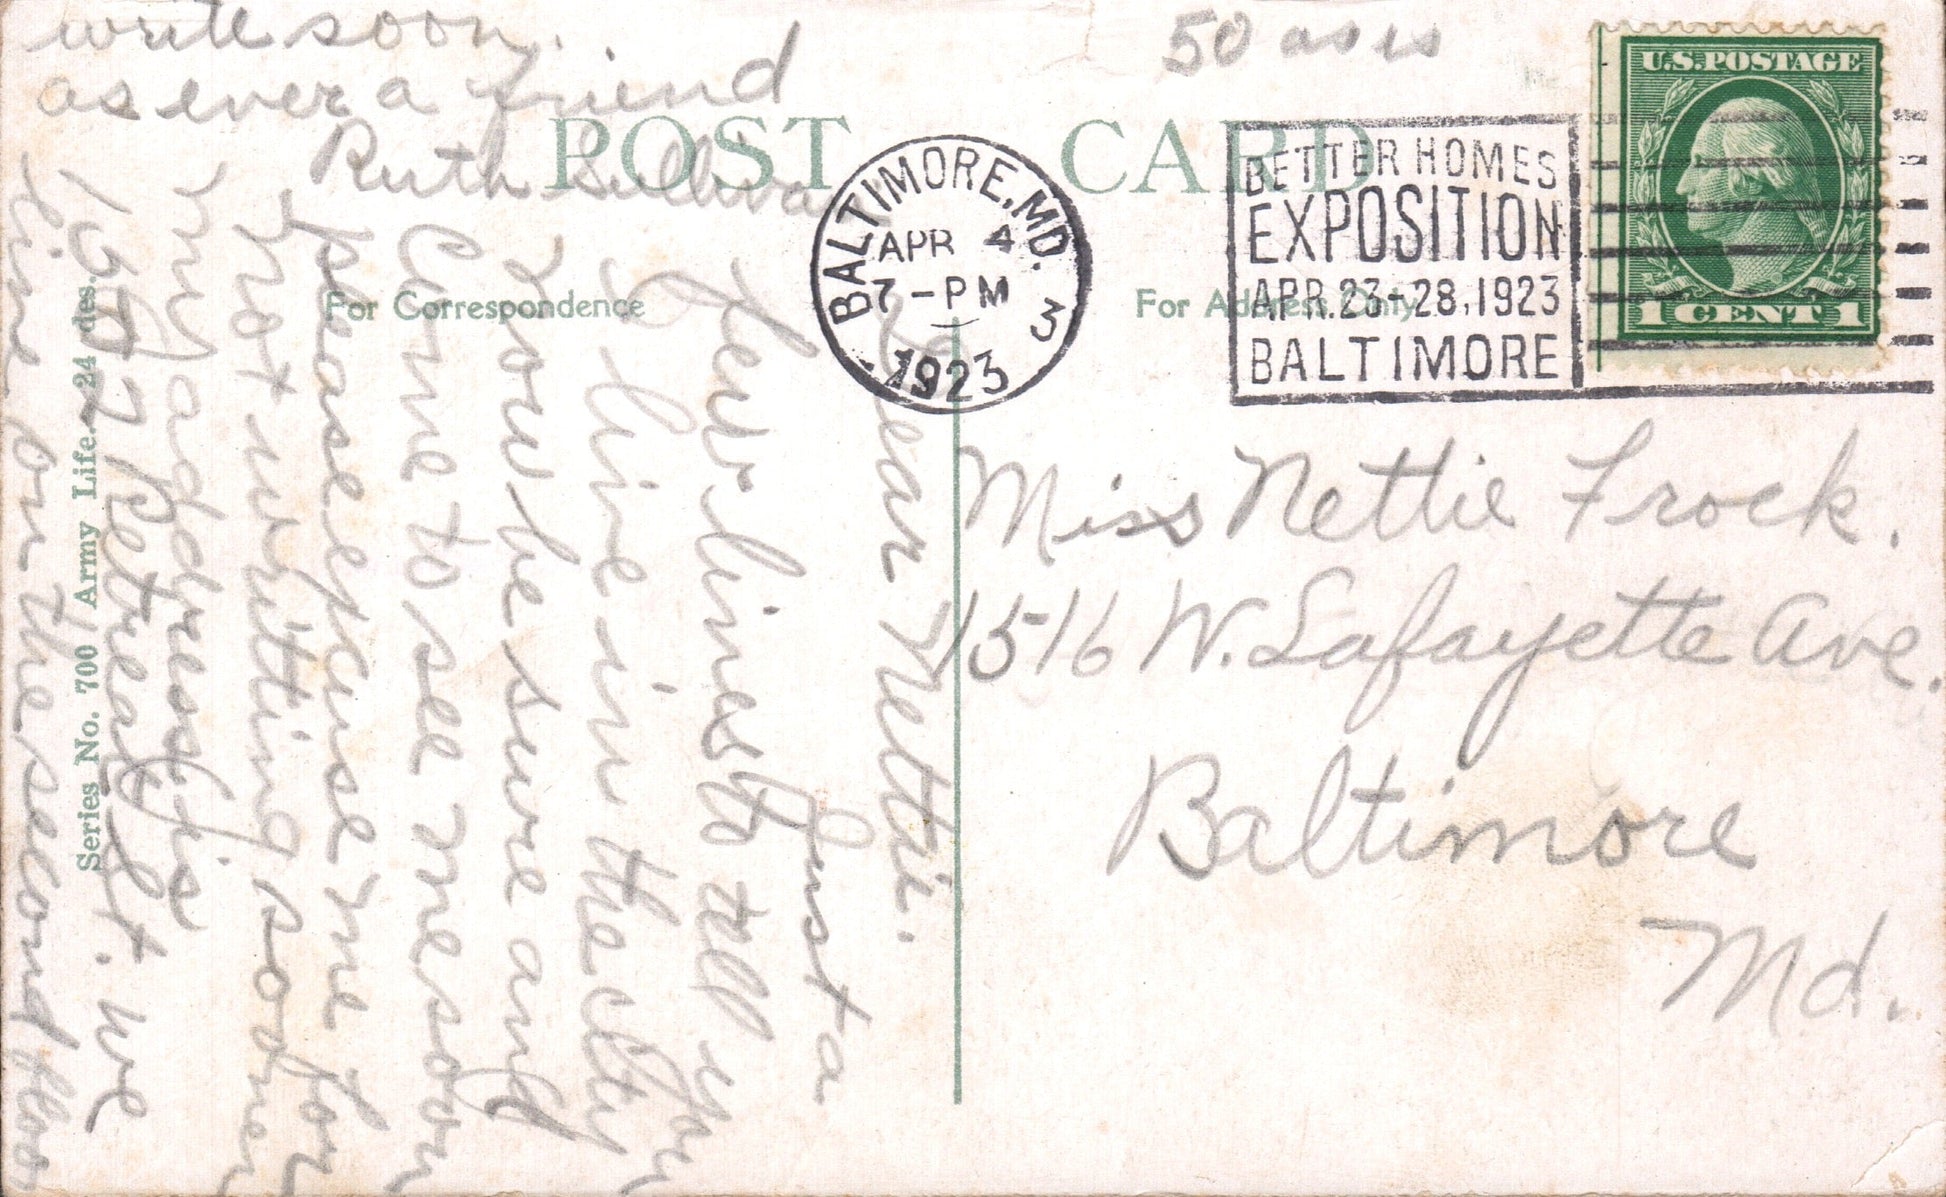 POST CARD
For Correspondence
For Address Only
Series No. 700 Army Life. 24 des.
50 as is
BALTIMORE, MD.
APR 4
7-PM
3
1923
BETTER HOMES
EXPOSITION
APR. 23-28, 1923
BALTIMORE
U.S. POSTAGE
1 CENT 1
Miss Nettie Frock.
1516 W. Lafayette Ave.
Baltimore
Md.
Dear Nettie.
Just a
few lines to tell you
I live in the city
now be sure and
Come to see me soon
please excuse me for
not writing sooner
my address is
1507 Retreat St. we
live on the second floor
write soon.
as ever a friend
Ruth Sullivan